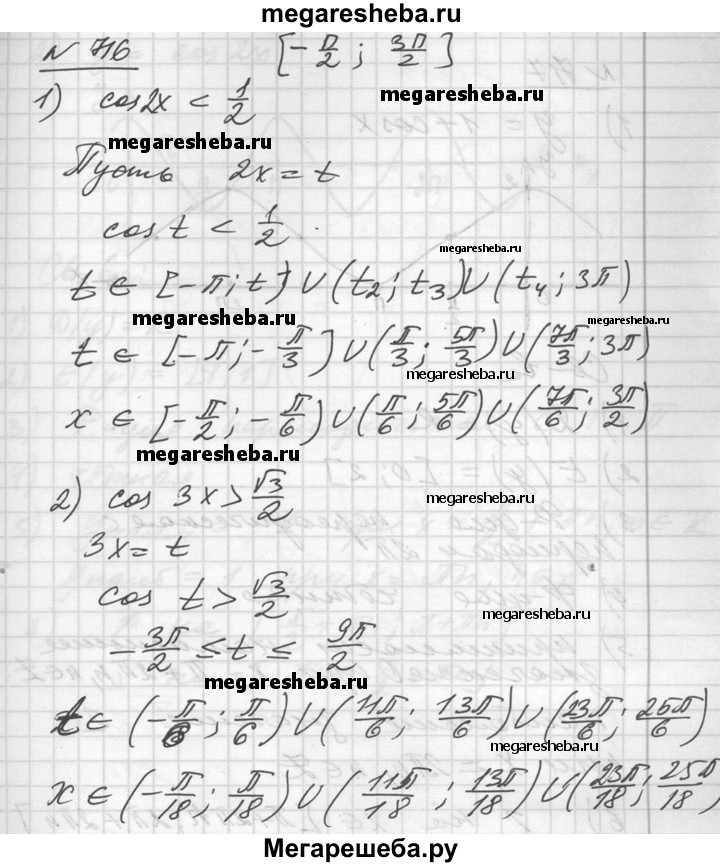 megaresheba.ru
№ 716 [-π/2; 3π/2]
1) cos2x < 1/2
megaresheba.ru
megaresheba.ru
Пусть 2x = t
cos t < 1/2
megaresheba.ru
t ∈ [-π; t) ∪ (t₂; t₃) ∪ (t₄; 3π)
megaresheba.ru
megaresheba.ru
t ∈ [-π; -π/3] ∪ (π/3; 5π/3) ∪ (7π/3; 3π)
megaresheba.ru
x ∈ [-π/2; -π/6) ∪ (π/6; 5π/6) ∪ (7π/6; 3π/2)
megaresheba.ru
2) cos 3x > √3/2
megaresheba.ru
3x = t
cos t > √3/2
megaresheba.ru
-3π/2 ≤ t ≤ 9π/2
megaresheba.ru
t ∈ (-π/6; π/6) ∪ (11π/6; 13π/6) ∪ (23π/6; 25π/6)
megaresheba.ru
x ∈ (-π/18; π/18) ∪ (11π/18; 13π/18) ∪ (23π/18; 25π/18)
Мегарешеба.ру